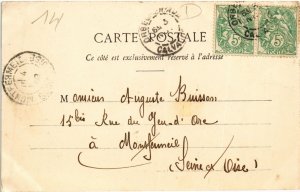 14
D
CARTE POSTALE
Ce côté est exclusivement réservé à l'adresse
CALVA
5 5
MONTFERMEIL
Monsieur Auguste Buisson
15 bis Rue du Jeu-d'Arc
à Montfermeil
(Seine & Oise)